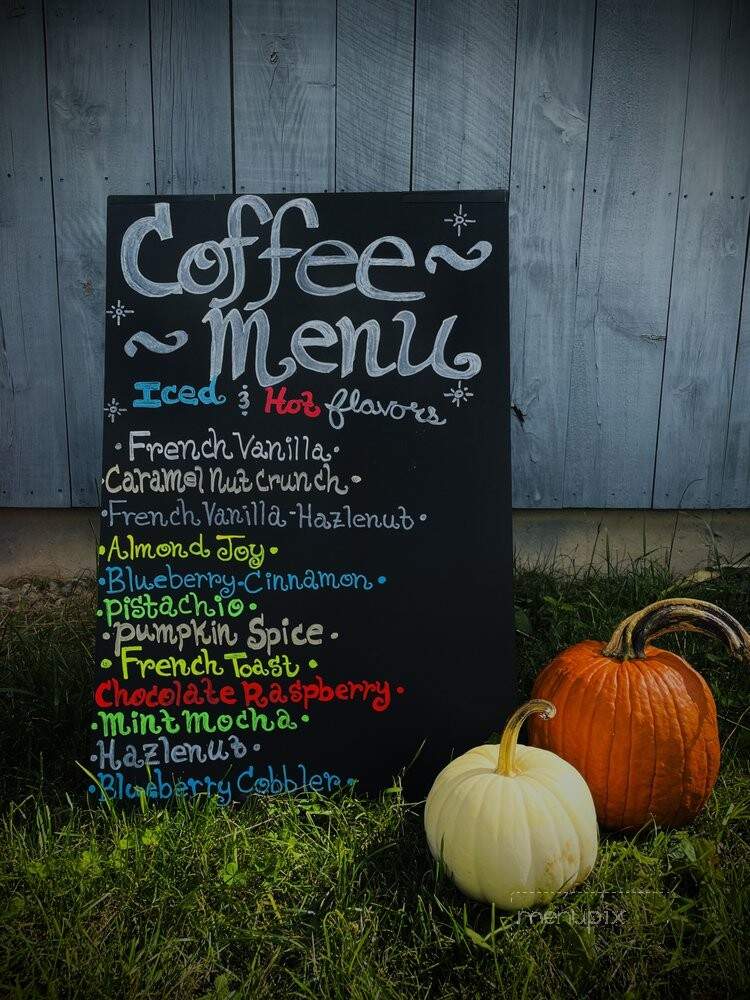 Coffee ~
~ menu
Iced & Hot flavors
• French Vanilla •
• Caramel Nut Crunch •
• French Vanilla-Hazlenut •
• Almond Joy •
• Blueberry-Cinnamon •
• Pistachio •
• Pumpkin Spice •
• French Toast •
Chocolate Raspberry •
• Mint Mocha •
• Hazlenut •
• Blueberry Cobbler •
menupix